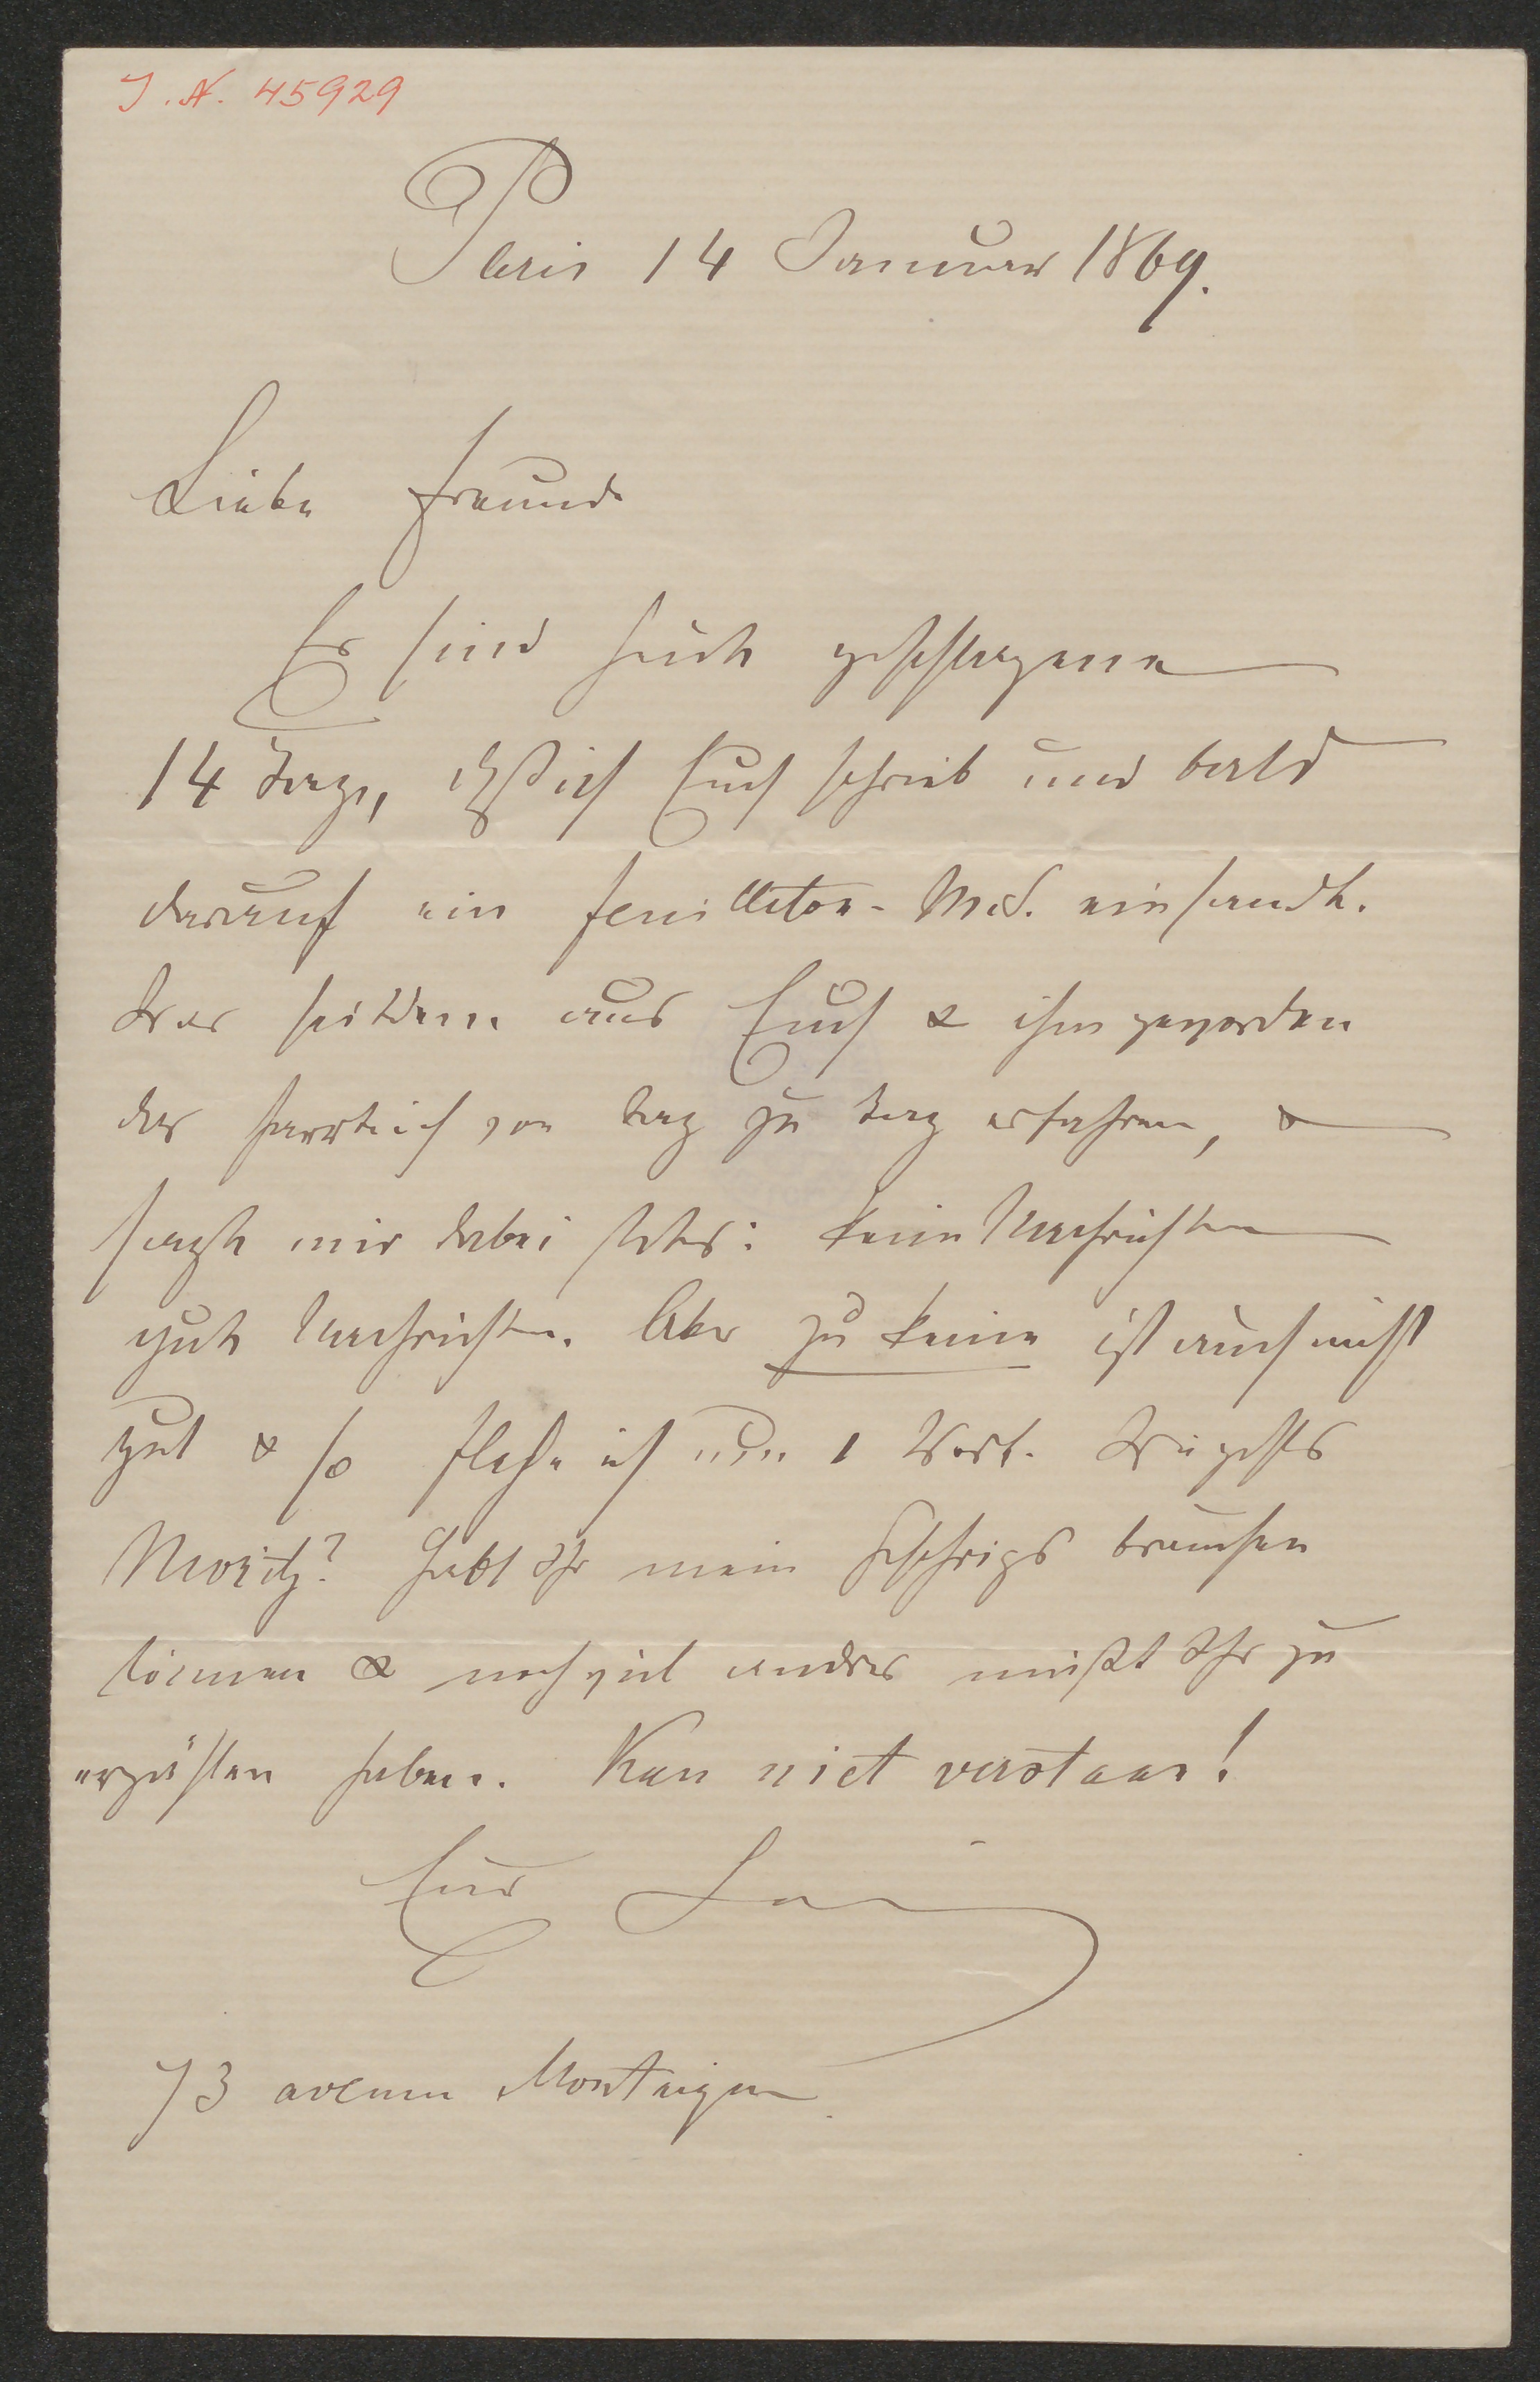 J. N. 45929
Paris 14 Januar 1869.
Liebe Freunde
Es sind heute geschlagene
14 Tage, daß ich Euch schrieb und bald
darauf ein Feuilleton-Mcs. einsandte.
Was seitdem aus Euch & ihm geworden
das harrte ich von Tag zu Tag erfahren, &
sagte mir dabei stets: keine Nachrichten
gute Nachrichten. Aber zu keine ist auch nicht
gut & so flehe ich um 1 Wort. Wie gehts
Moritz? Habt Ihr mein Geschriebs brauchen
können & noch viel andres müßt Ihr zu
erzählen haben. Kan niet verstaan!
Eur
73 avenue Montaigne